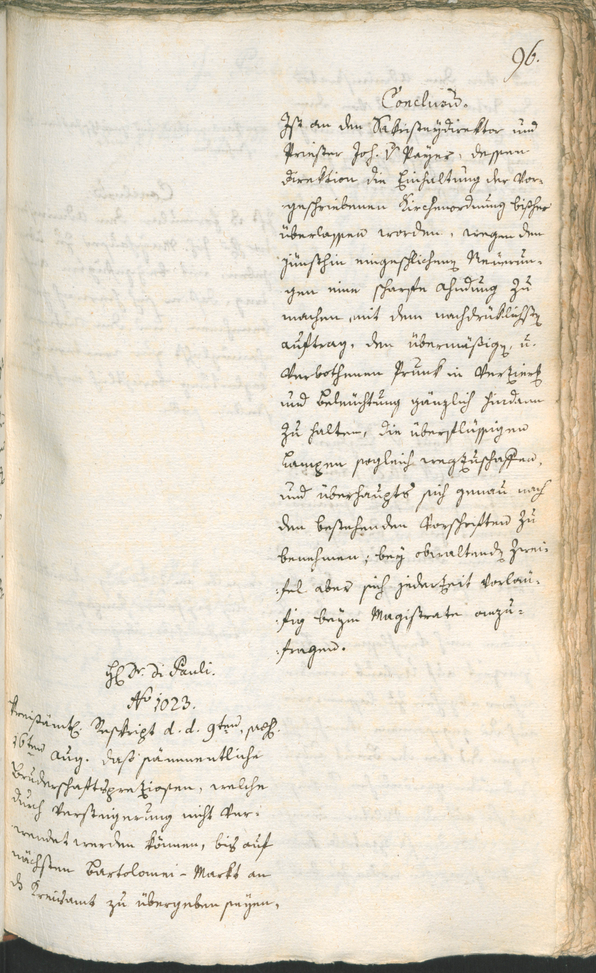 96.
Conclusum.
Ist an den Sakristeydirektor und
Priester Joh. V Payer, dessen
Direktion die Einhaltung der Vor-
geschriebenen Kirchenordnung bißher
überlassen worden, wegen den
jünsthin eingeschlichenen Neuerun-
gen eine scharfe Ahndung zu
machen, mit dem nachdrüklichsten
Auftrag, den übermäßigen, u.
Verbothenen Prunk in Verzierung
und Beleuchtung gänzlich hindann
zu halten, die überflüssigen
Lampen sogleich wegzuschaffen,
und überhaupts sich genau nach
den bestehenden Vorschriften zu
benehmen; bey obwaltenden Zwei-
:fel aber sich jederzeit vorläu-
:fig beym Magistrate anzu-
:fragen.
H Dr. Di Pauli.
No 1023.
Kreisämtl. Reskript d. d. 9ten,
16ten Aug. daß sämmentliche
Bruderschaftspreziosen, welche
durch Versteigerung nicht Ver:
wendet werden können, bis auf
nächsten Bartolomei-Markt an
ds Kreisamt zu übergeben seyen,